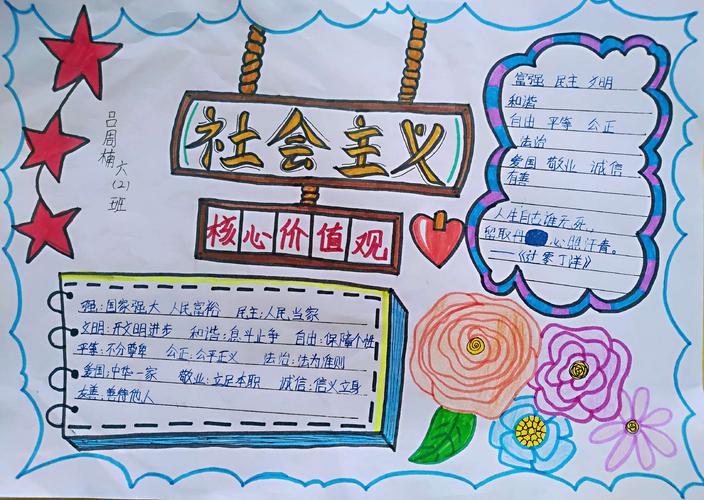 社会主义
核心价值观
吕周楠
六(2)班
富强 民主 文明
和谐
自由 平等 公正
法治
爱国 敬业 诚信
有善
人生自古谁无死,
留取丹心照汗青。
——《过零丁洋》
强:国家强大 人民富裕 民主:人民当家
文明:开文明进步 和谐:息斗止争 自由:保障个性
平等:不分尊卑 公正:公平正义 法治:法为准则
爱国:中华一家 敬业:立足本职 诚信:信义立身
友善:善待他人